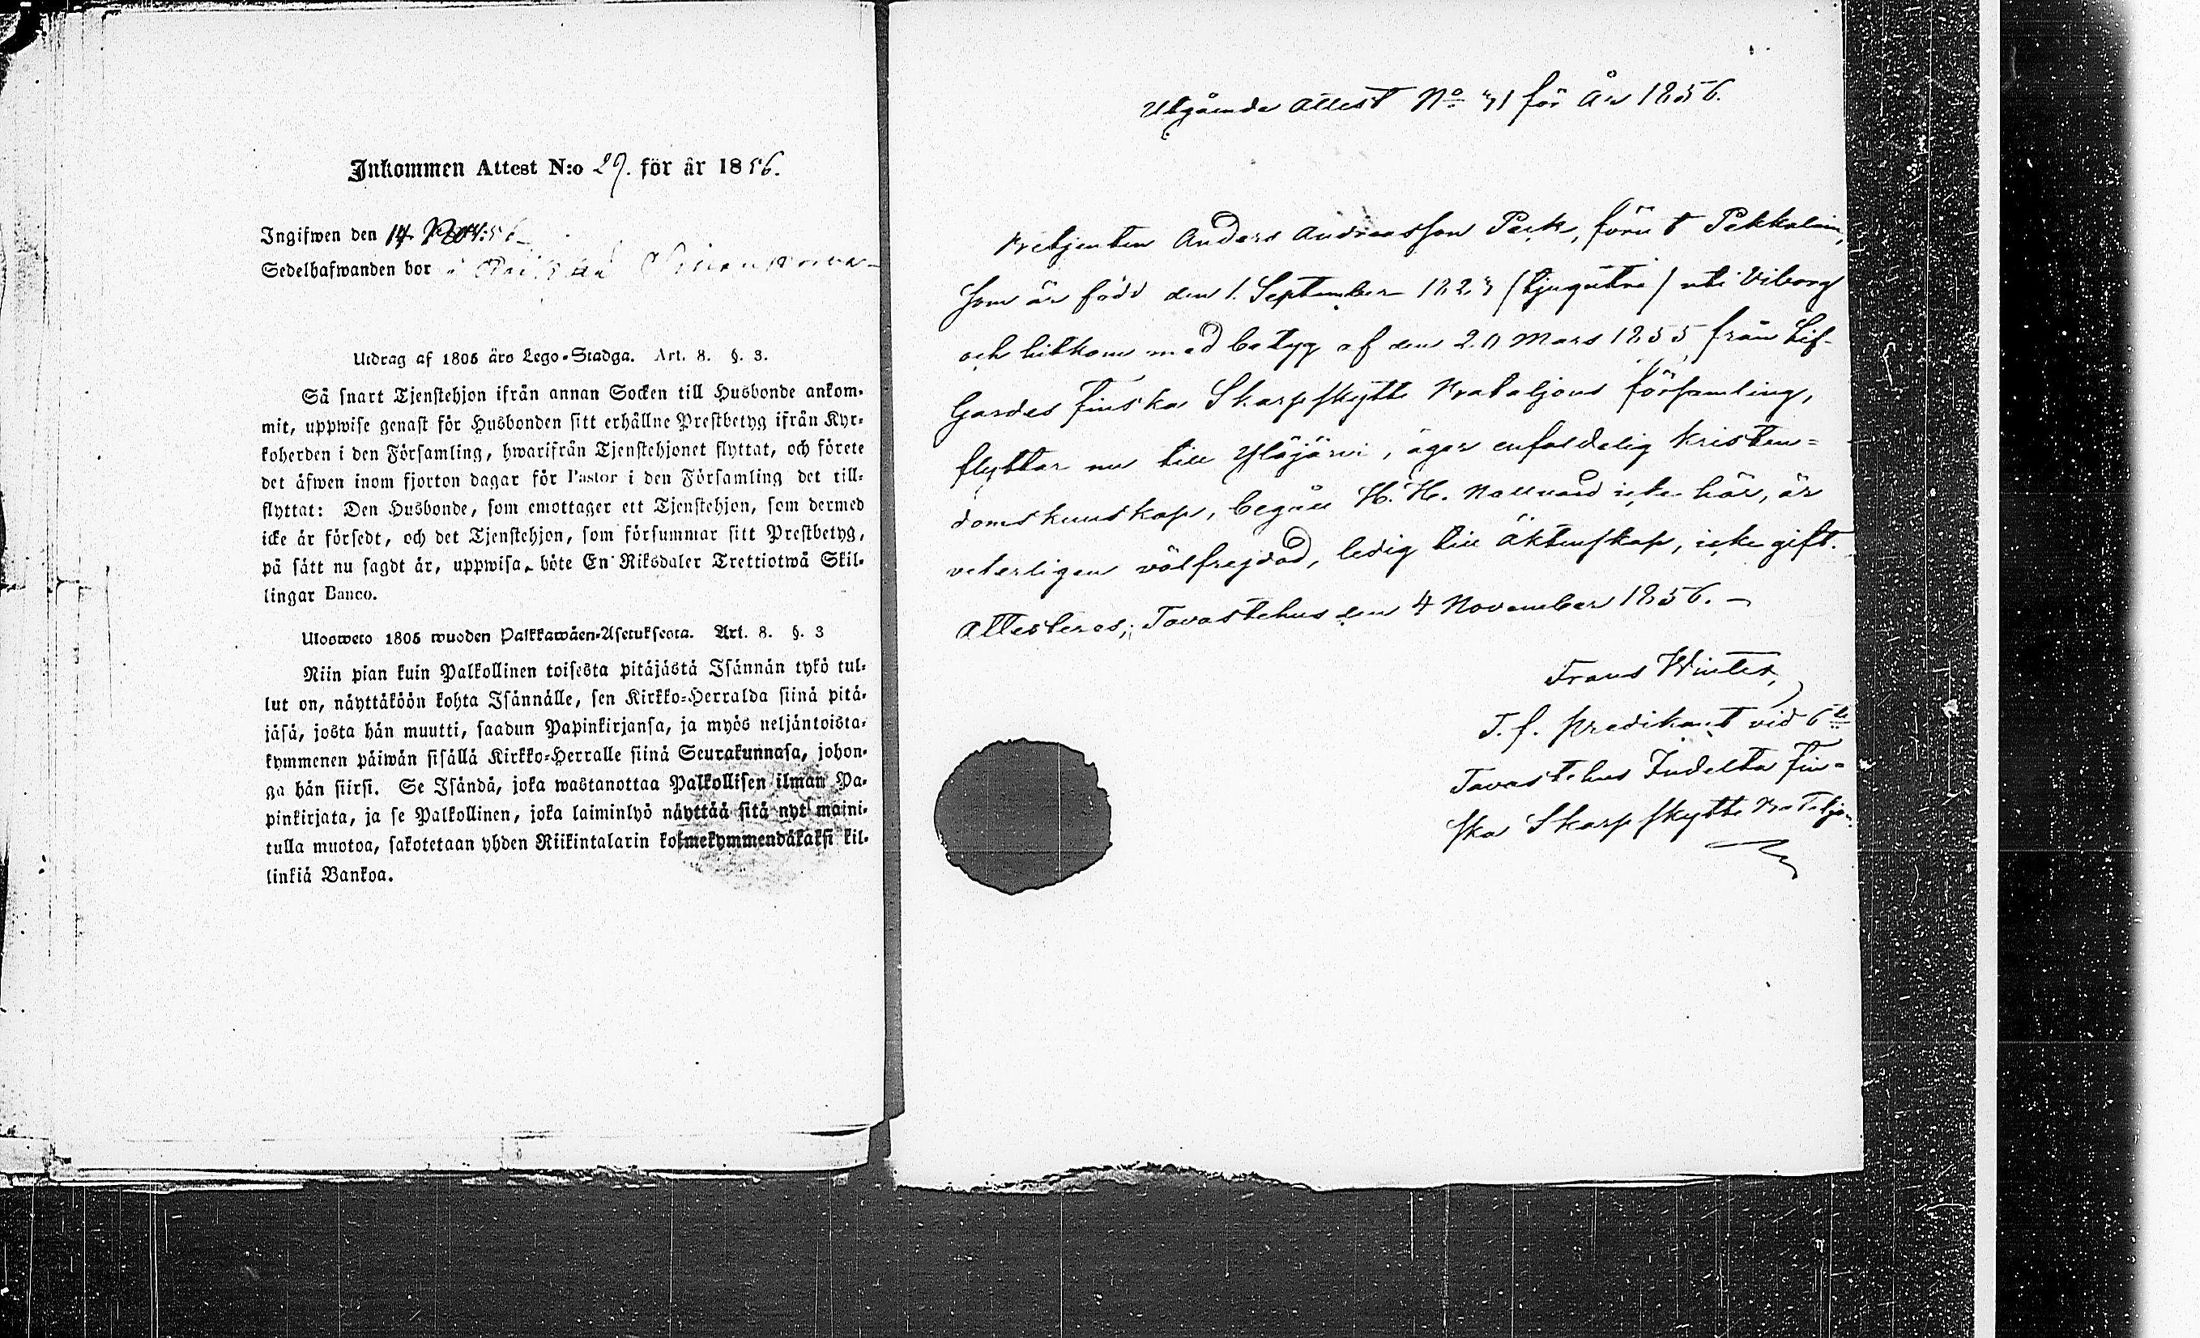 Inkommen Attest N:o 29. för år 1856.
Ingifwen den 14 Nov. 56
Sedelhafwanden bor i
Utdrag af 1805 års Lego-Stadga. Art. 8. §. 3.
Så snart Tjenstehjon ifrån annan Socken till Husbonde ankom-
mit, uppwise genast för Husbonden sitt erhållne Prestbetyg ifrån Kyr-
koherden i den Församling, hwarifrån Tjenstehjonet flyttat, och förete
det äfwen inom fjorton dagar för Pastor i den Församling det till-
flyttat: Den Husbonde, som emottager ett Tjenstehjon, som dermed
icke är försedt, och det Tjenstehjon, som försummar sitt Prestbetyg,
på sätt nu sagdt är, uppwisa, böte En Riksdaler Trettiotwå Skil-
lingar Banco.
Ulosweto 1805 wuoden Palkkawäen-Asetuksesta. Art. 8. §. 3
Niin pian kuin Palkollinen toisesta pitäjästä Isännän tykö tul-
lut on, näyttäköön kohta Isännälle, sen Kirkko-Herralda siinä pitä-
jäsä, josta hän muutti, saadun Papinkirjansa, ja myös neljäntoista-
kymmenen päiwän sisällä Kirkko-Herralle siinä Seurakunnasa, johon-
ga hän siirsi. Se Isändä, joka wastanottaa Palkollisen ilman Pa-
pinkirjata, ja se Palkollinen, joka laiminlyö näyttää sitä nyt maini-
tulla muotoa, sakotetaan yhden Riikintalarin kolmekymmendäkaksi kil-
linkiä Bankoa.
Utgående Attest No 31 för År 1856.
Betjenten Anders Andreasson Perk, förut Pekkalain,
som är född den 1. September 1823 (tjugutre) uti Viborg
och hitkom med betyg af den 20 Mars 1855 från Lif-
Gardes Finska Skarpskytte Bataljons församling,
flyttar nu till Ylöjärvi, äger enfaldelig kristen-
domskunskap, begått H. H. Nattvard icke här, är
veterligen välfrejdad, ledig till äktenskap, icke gift.
Attesteras; Tavastehus den 4 November 1856. –
Frans Winter,
T. f. predikant vid 6te
Tavastehus Indelta Fin-
ska Skarpskytte Bataljon.